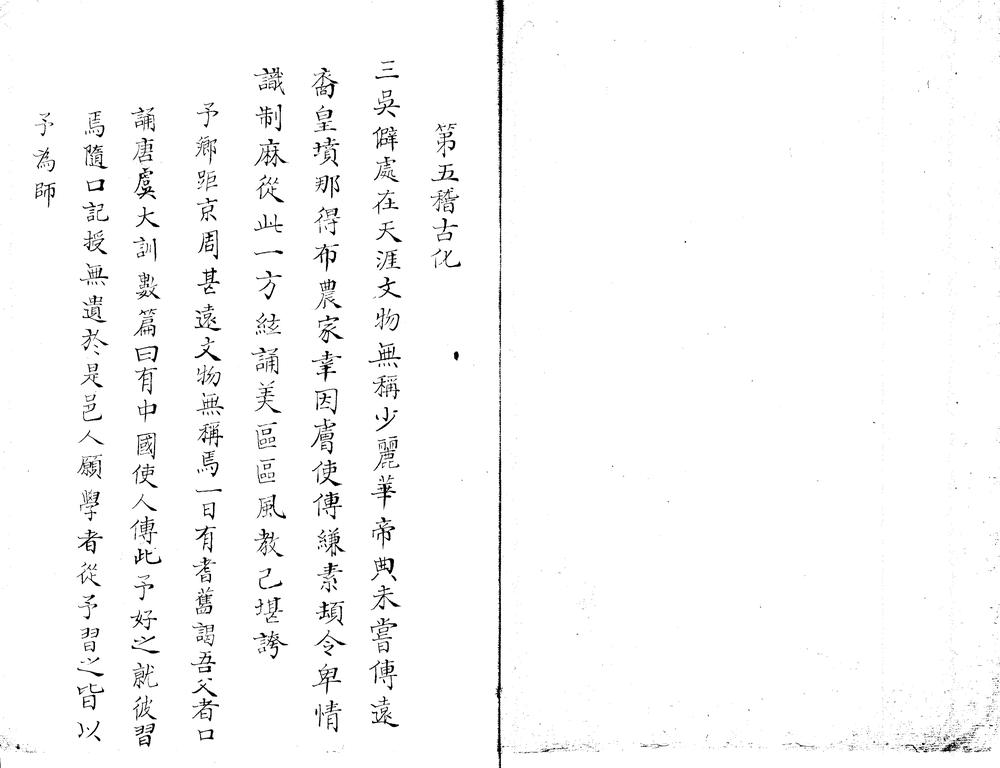 第五稽古化
三吳僻處在天涯文物無稱少麗華帝典未嘗傳遠
裔皇墳那得布農家幸因膚使傳縑素頓令卑情
識制麻從此一方絃誦美區區風教己堪誇
予鄉距京周甚遠文物無稱焉一日有耆舊謁吾父者口
誦唐虞大訓數篇曰有中國使人傳此予好之就彼習
焉隨口記授無遺於是邑人願學者從予習之皆以
予為師